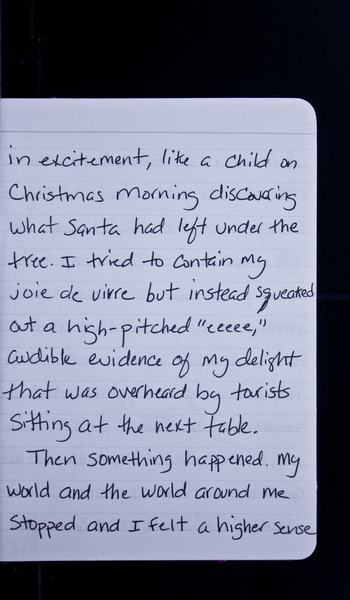 in excitement, like a child on
Christmas morning discovering
what Santa had left under the
tree. I tried to contain my
joie de vivre but instead squeaked
out a high-pitched "eeeee,"
audible evidence of my delight
that was overheard by tourists
sitting at the next table.
Then something happened. My
world and the world around me
stopped and I felt a higher sense